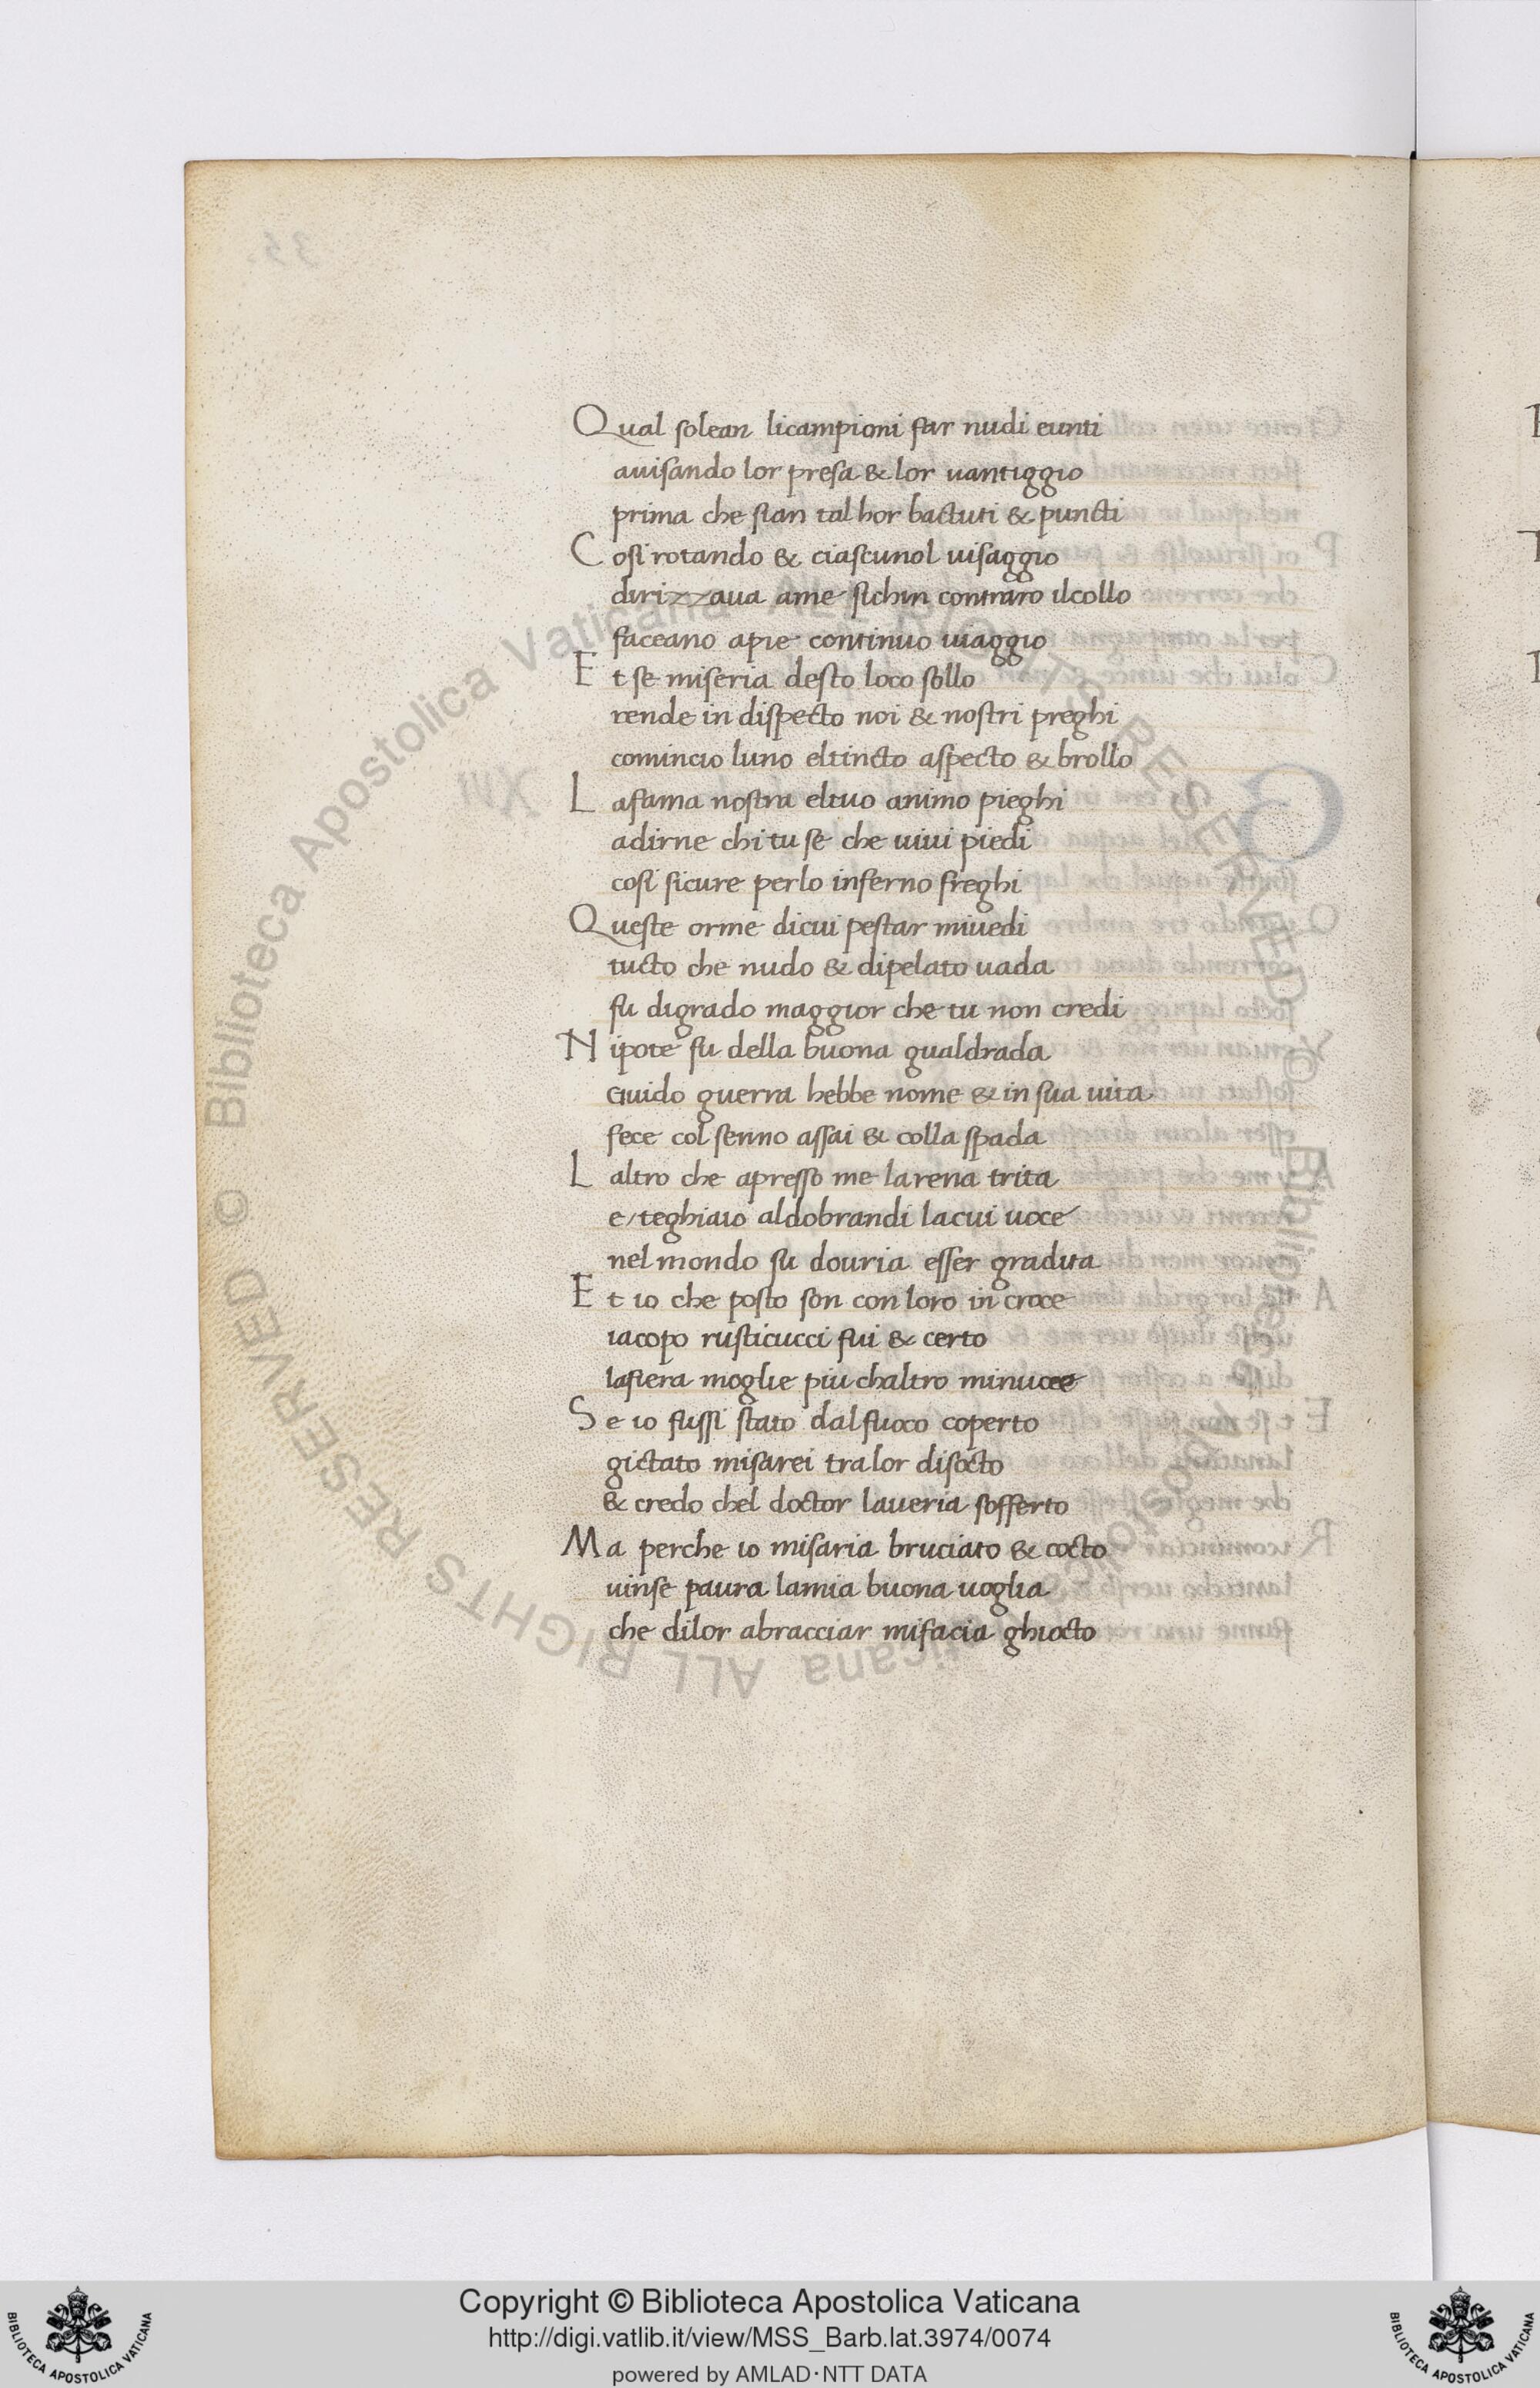 Qual solean licampioni far nudi eunti
auisando lor presa & lor uantiggio
prima che sian tal hor bactuti & puncti
Cosi rotando & ciascunol uisaggio
dirizzaua ame sichin contraro ilcollo
faceano apie continuo uiaggio
Et se miseria desto loco sollo
rende in dispecto noi & nostri preghi
comincio luno eltincto aspecto & brollo
Lafama nostra eltuo animo pieghi
adirne chi tu se che uiui piedi
cosi sicure perlo inferno freghi
Queste orme dicui pestar miuedi
tucto che nudo & dipelato uada
fu digrado maggior che tu non credi
Nipote fu della buona gualdrada
Guido guerra hebbe nome & in sua uita
fece col senno assai & colla spada
Laltro che apresso me larena trita
e/teghiaio aldobrandi lacui uoce
nel mondo su douria esser gradita
Et io che posto son con loro in croce
iacopo rusticucci fui & certo
lafiera moglie piu chaltro minuoce
Se io fussi stato dalfuoco coperto
gictato misarei tralor disocto
& credo chel doctor laueria sofferto
Ma perche io misaria bruciato & cocto
uinse paura lamia buona uoglia
che dilor abracciar mifacia ghiocto
Biblioteca Apostolica Vaticana ALL RIGHTS RESERVED ©
Copyright © Biblioteca Apostolica Vaticana
http://digi.vatlib.it/view/MSS_Barb.lat.3974/0074
powered by AMLAD·NTT DATA
BIBLIOTECA APOSTOLICA VATICANA
BIBLIOTECA APOSTOLICA VATICANA